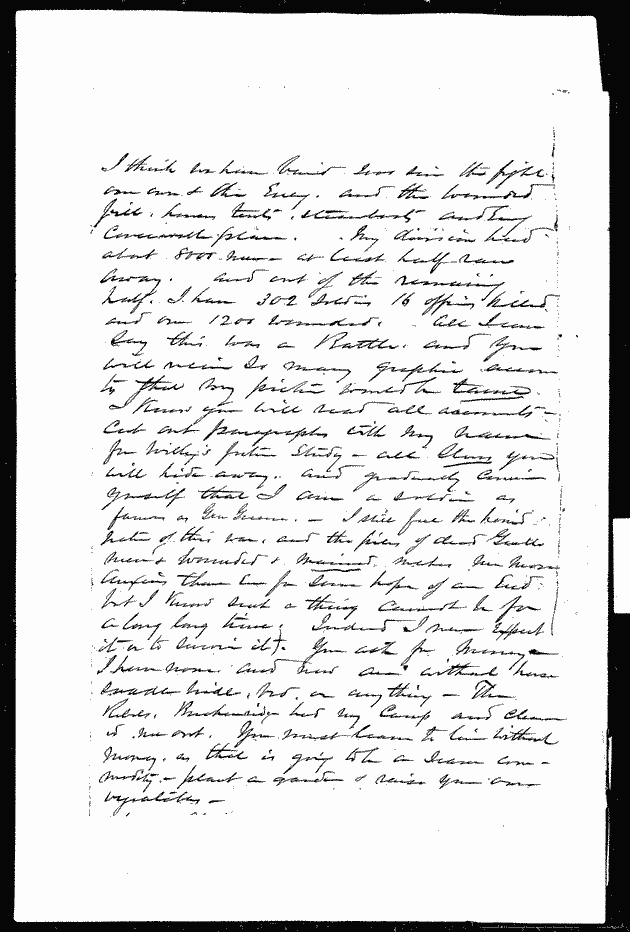 I think we have buried since the fight
our own & the Enemy. and the wounded
fill houses, tents, steamboats and every
Conceivable place. My division had
about 8000 men at least half ran
away. and out of the remaining
half. I have 302 soldiers 16 officers killed
and over 1200 wounded. All I can
Say this was a Battle. and you
will receive so many graphic accoun
ts that my picture would be tame.
I know you will read all accounts -
Cut out paragraphs with my name
for Willy's future Study - all Slurs you
will hide away. and gradually Convince
yourself that I am a soldier as
famous as Gen Greene. - I still feel the horrid
nature of this war, and the piles of dead Gentle
men & wounded & maimed makes me more
anxious than Ever for some hope of an End.
but I know such a thing cannot be for
a long long time. Indeed I never Expect
it or to survive it. You ask for Money -
I have none and now am without horse
saddle bridle, bed, or anything - The
Rebels, Breckenridge had my Camp and cleaned
me out. You must learn to live without
money, as that is going to be a scarce com -
modity - plant a garden & raise your own
vegetables -